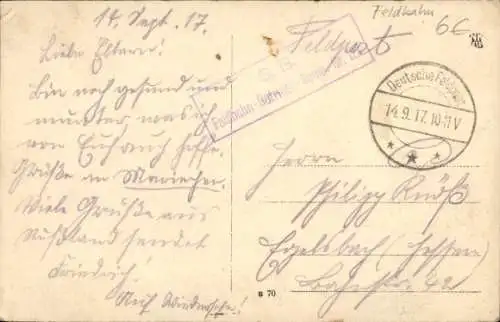 14. Sept. 17.
Liebe Eltern!
Bin noch gesund und
munter was ich
von Euch auch hoffe.
Grüße an Mariechen.
Viele Grüße aus
Rußland sendet
Friedrich!
Auf Wiedersehn!
Feldbahn
6C
Feldpost
S. B.
Feldbahn-Betriebs-
Deutsche Feldpost
14.9.17.10-11V
Herrn
Philipp Knöß
Egelsbach (Hessen)
Bahnstr. 42
B 70